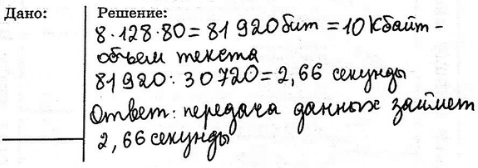 Дано:
Решение:
8·128·80=81920бит=10Кбайт-
объем текста
81920:30720=2,66 секунды
Ответ: передача данных займет
2,66секунды